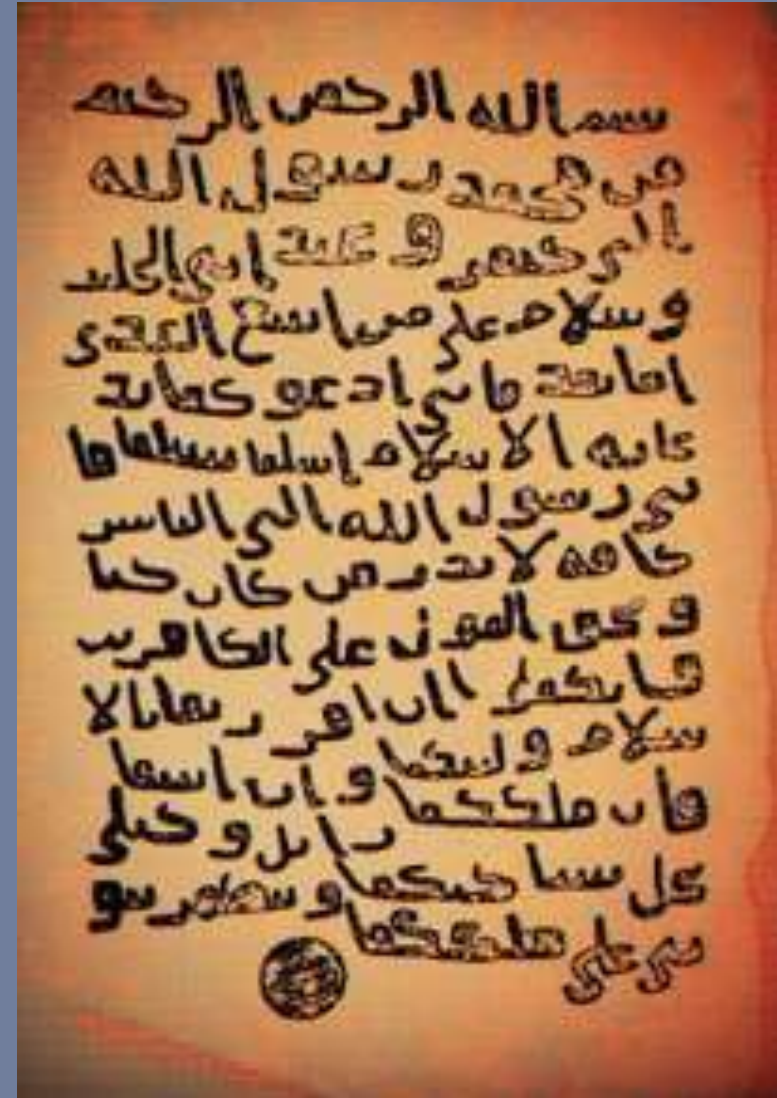 بسم الله الرحمن الرحيم
من محمد رسول الله
إلى جيفر و عبد إبني الجلند
و سلام على من اتبع الهدى
اما بعد فاني ادعوكما بد
عاية الاسلام إسلما تسلما فا
ني رسول الله الى الناس
كافة لانذر من كان حيا
و يحق القول على الكافرين
فإنكما إن اقررتما بالا
سلام وليتكما و إن ابيتما
فإن ملككما زائل و خيلي
تحل بساحتكما و تظهر نبو
تي على ملككما